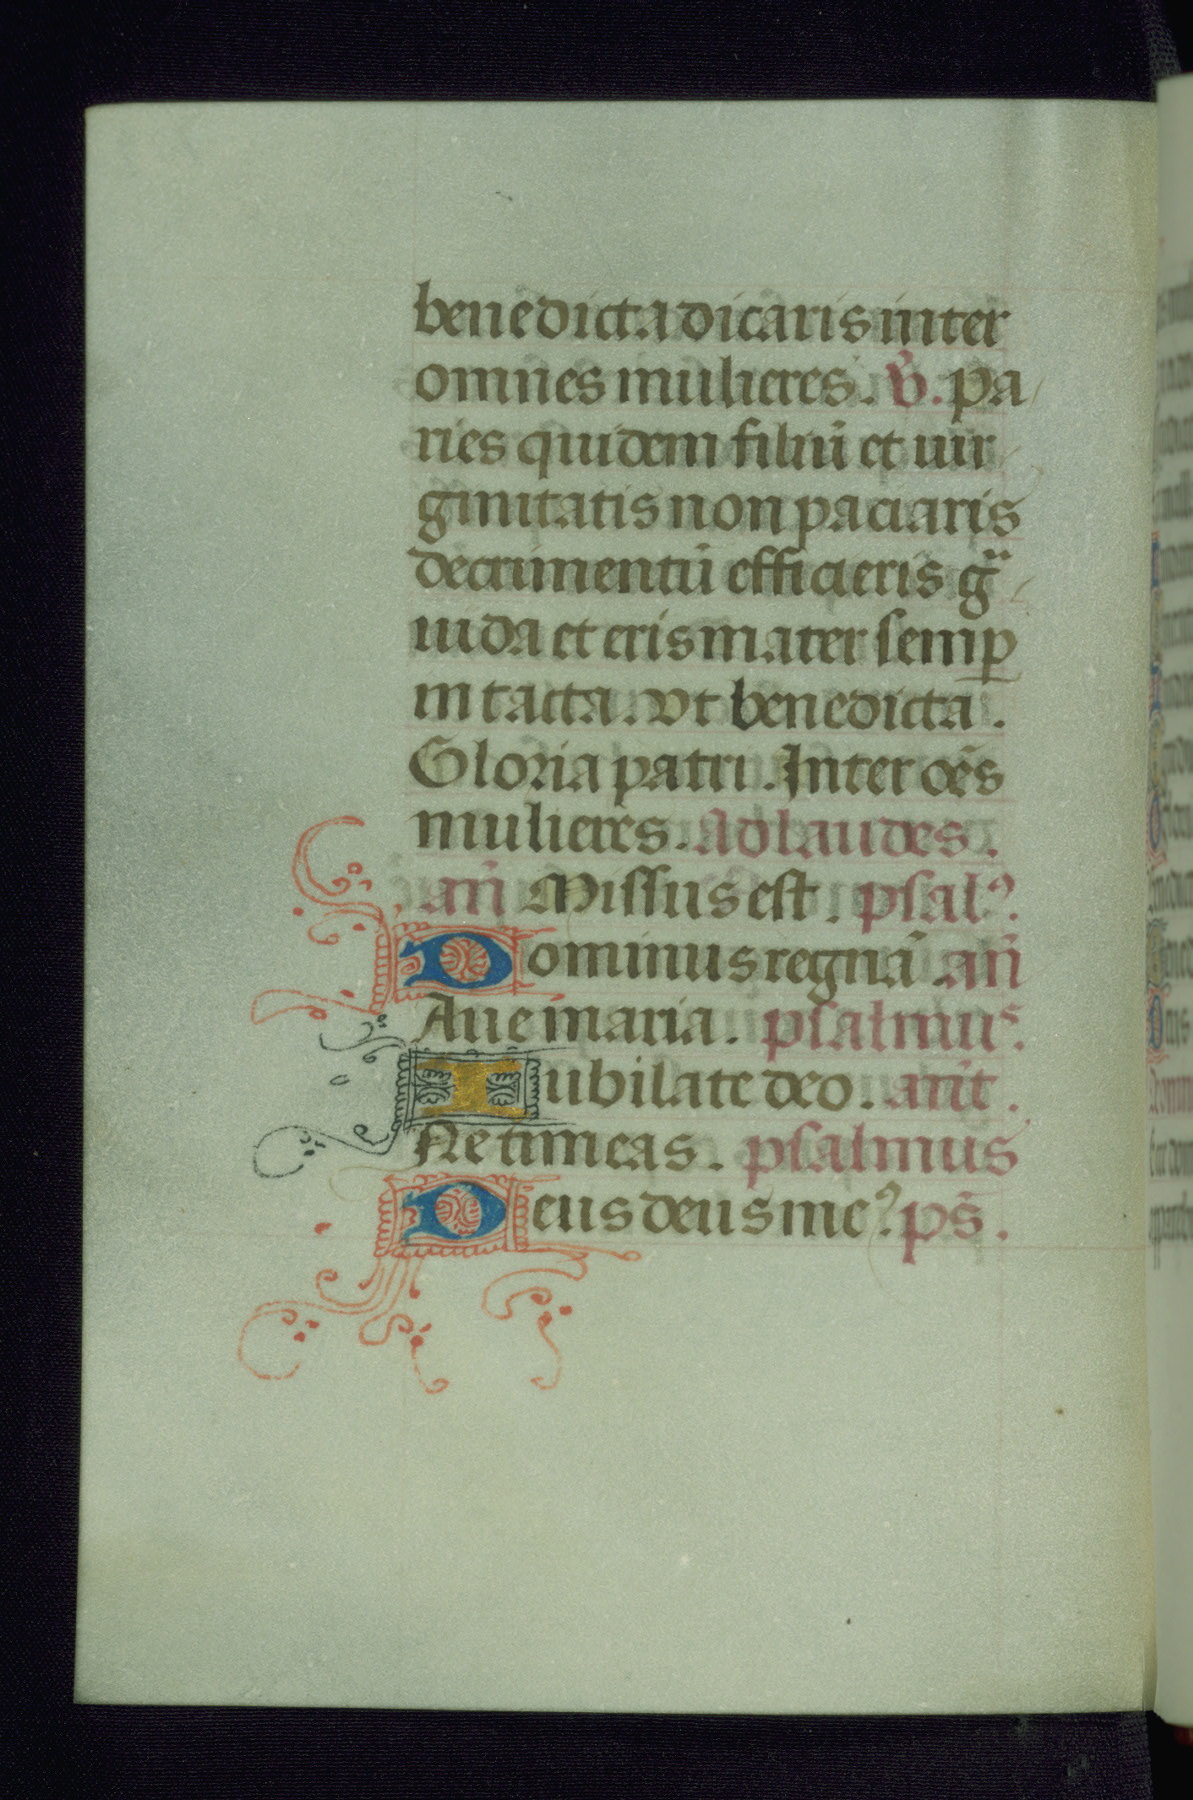 benedicta dicaris inter
omnes mulieres. V̄. Pa
ries quidem filiū et uir
ginitatis non paciaris
detrimentū efficieris gͣ
uida et eris mater semꝑ
intacta. Vt benedicta.
Gloria patri. Inter oēs
mulieres. Ad laudes.
an̄ Missus est. psalꝰ.
Dominus regnā. an̄
Aue maria. psalmuˢ.
Iubilate deo. ant̄.
Ne timeas. psalmus
Deus deus meꝰ. ps̄.